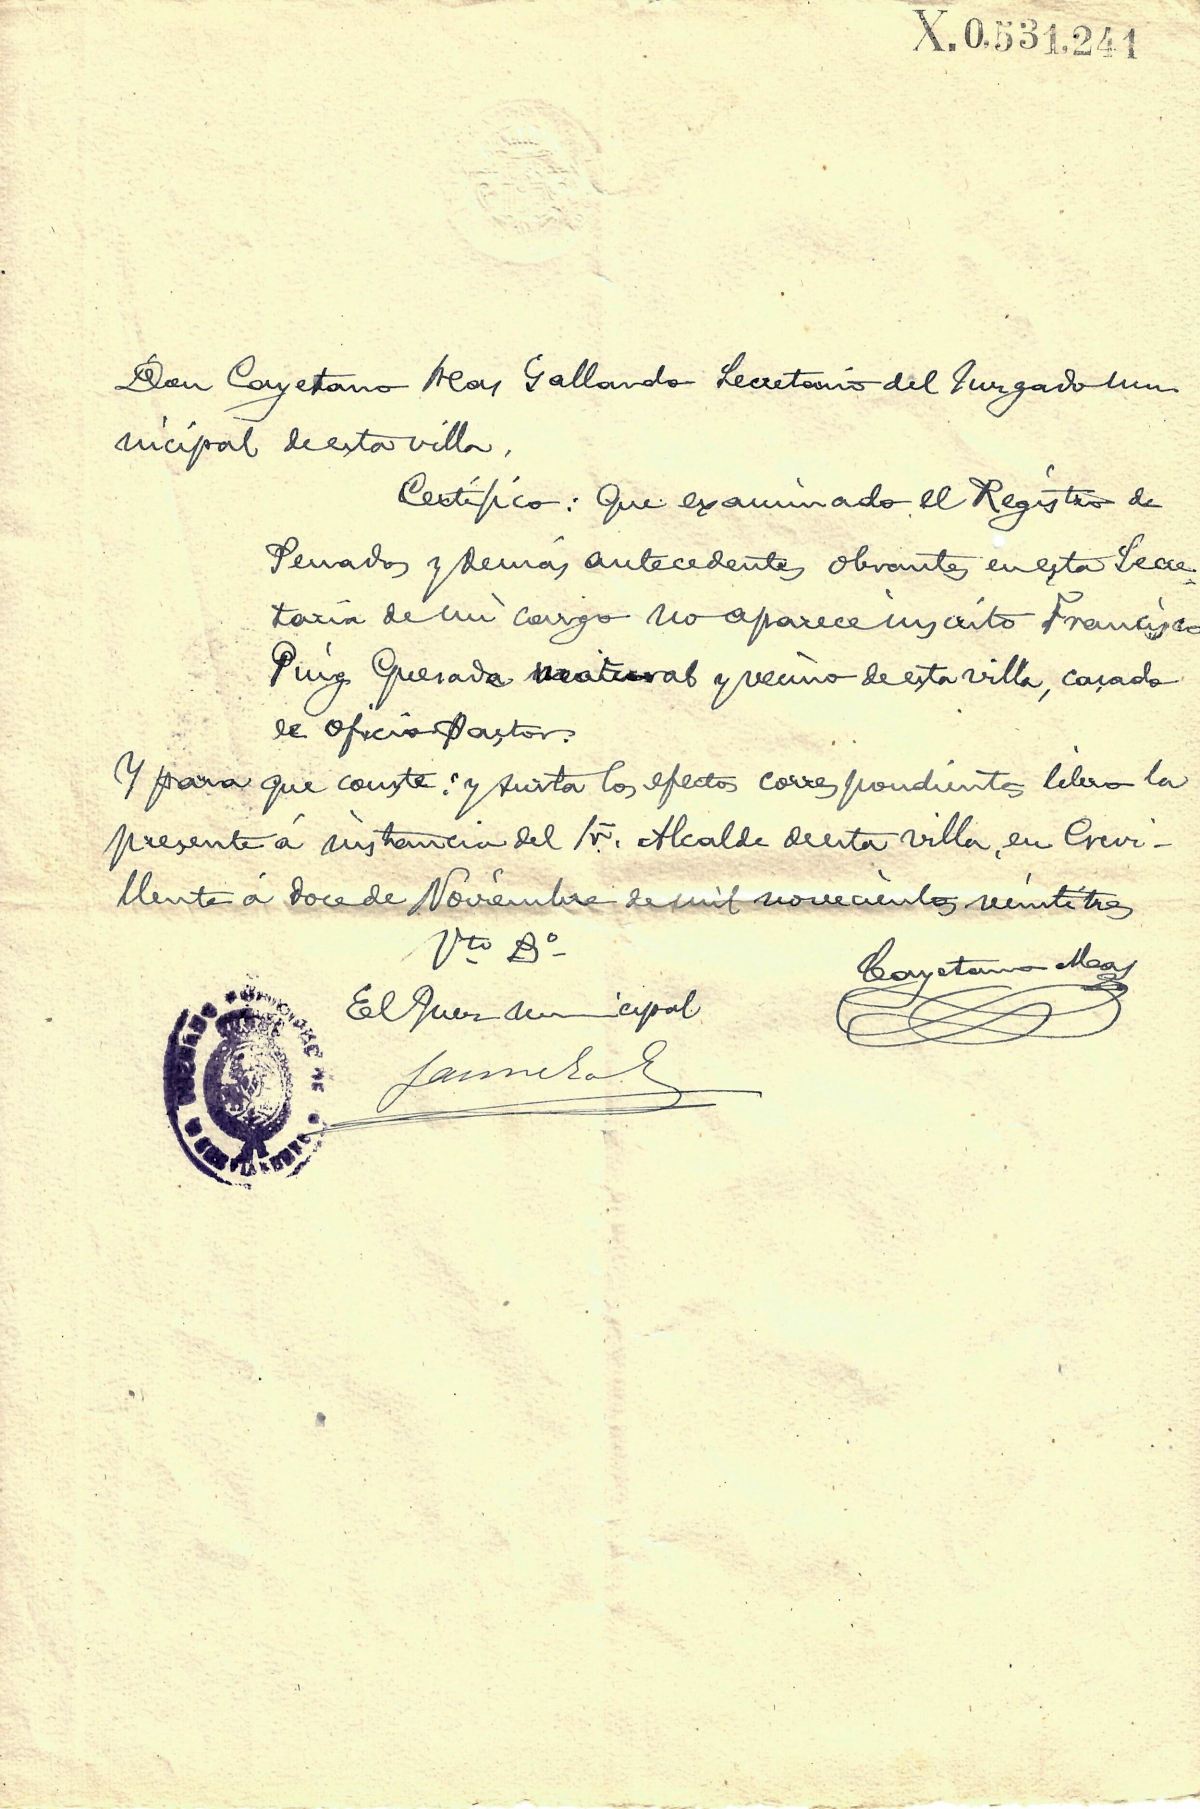 X.0,531,241
Don Cayetano Mas Gallardo Secretario del Juzgado mu
nicipal de esta villa.
Certifico: Que examinado el Registro de
Penados y demás antecedentes obrantes en esta Secre-
taria de mi cargo no aparece inscrito Francisco
Puig Quesada natural y vecino de esta villa, casado
de oficio Pastor.
Y para que conste: y surta los efectos correspondientes libro la
presente á instancia del Sr. Alcalde de esta villa, en Crevi-
llente á doce de Noviembre de mil novecientos veintitres
Vto Bo
Cayetano Mas
El Juez municipal
JUZGADO MUNICIPAL DE